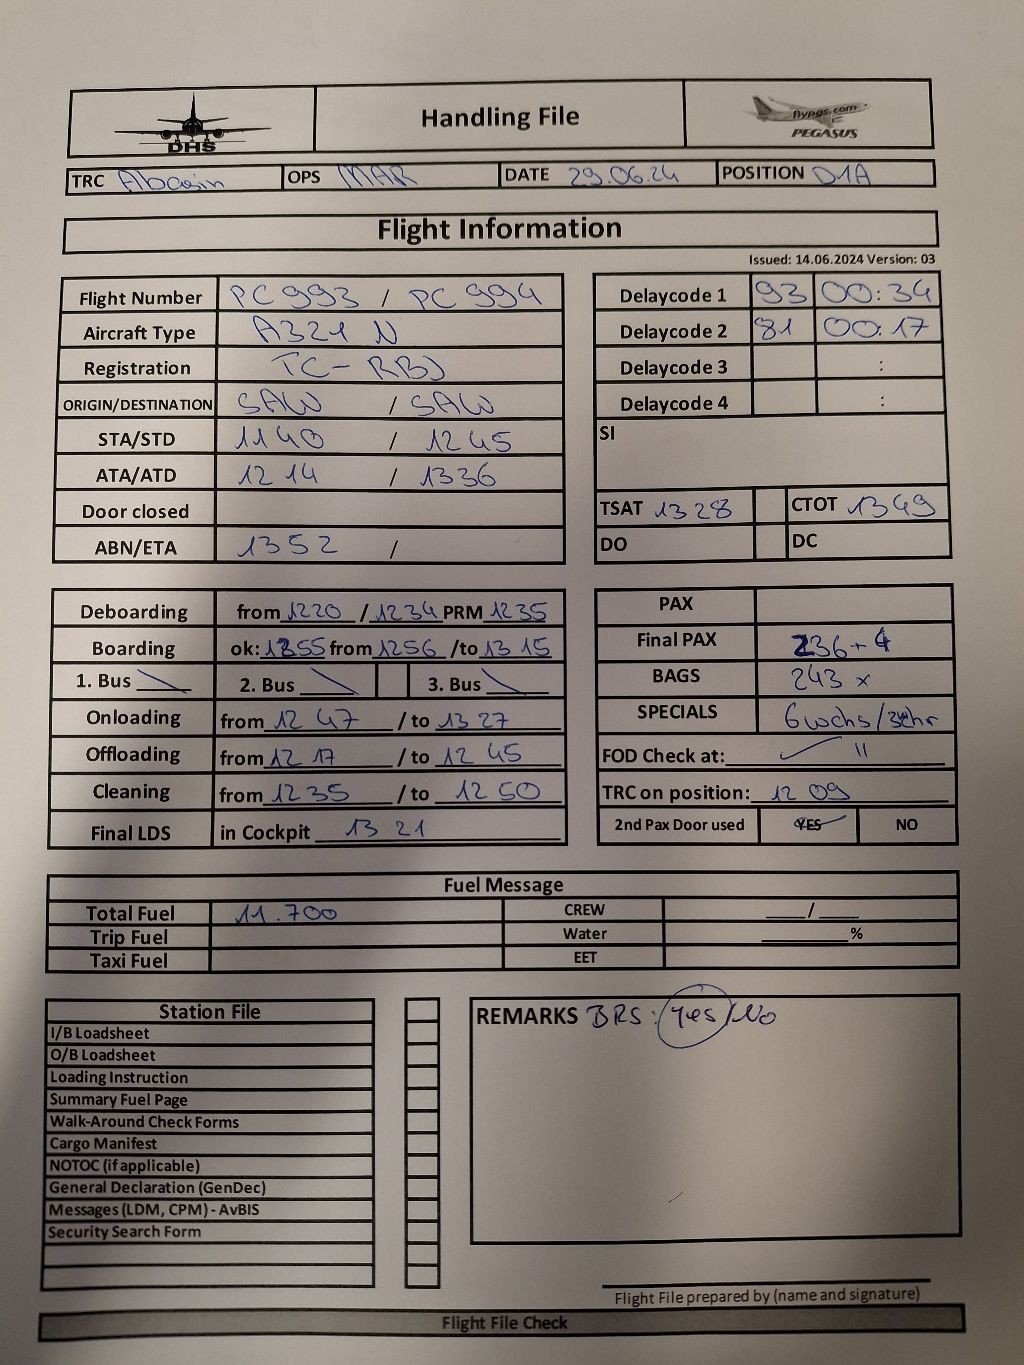 DHS
Handling File
flypgs.com
PEGASUS
TRC OPS MAR DATE 29.06.24 POSITION D1A
Flight Information
Issued: 14.06.2024 Version: 03
Flight Number PC 993 / PC 994
Aircraft Type A321 N
Registration TC-RBJ
ORIGIN/DESTINATION SAW / SAW
STA/STD 1140 / 1245
ATA/ATD 1214 / 1336
Door closed
ABN/ETA 1352 /
Delaycode 1 93 00:34
Delaycode 2 81 00:17
Delaycode 3 :
Delaycode 4 :
SI
TSAT 1328 CTOT 1349
DO DC
Deboarding from 1220 / 1234 PRM 1235
Boarding ok: 1255 from 1256 /to 1315
1. Bus 2. Bus 3. Bus
Onloading from 1247 / to 1327
Offloading from 1217 / to 1245
Cleaning from 1235 / to 1250
Final LDS in Cockpit 1321
PAX
Final PAX 236+4
BAGS 243 x
SPECIALS 6 wchs/
FOD Check at: "
TRC on position: 1209
2nd Pax Door used YES NO
Fuel Message
Total Fuel 11.700 CREW /
Trip Fuel Water %
Taxi Fuel EET
Station File
I/B Loadsheet
O/B Loadsheet
Loading Instruction
Summary Fuel Page
Walk-Around Check Forms
Cargo Manifest
NOTOC (if applicable)
General Declaration (GenDec)
Messages (LDM, CPM) - AvBIS
Security Search Form
REMARKS BRS: Yes/No
Flight File prepared by (name and signature)
Flight File Check